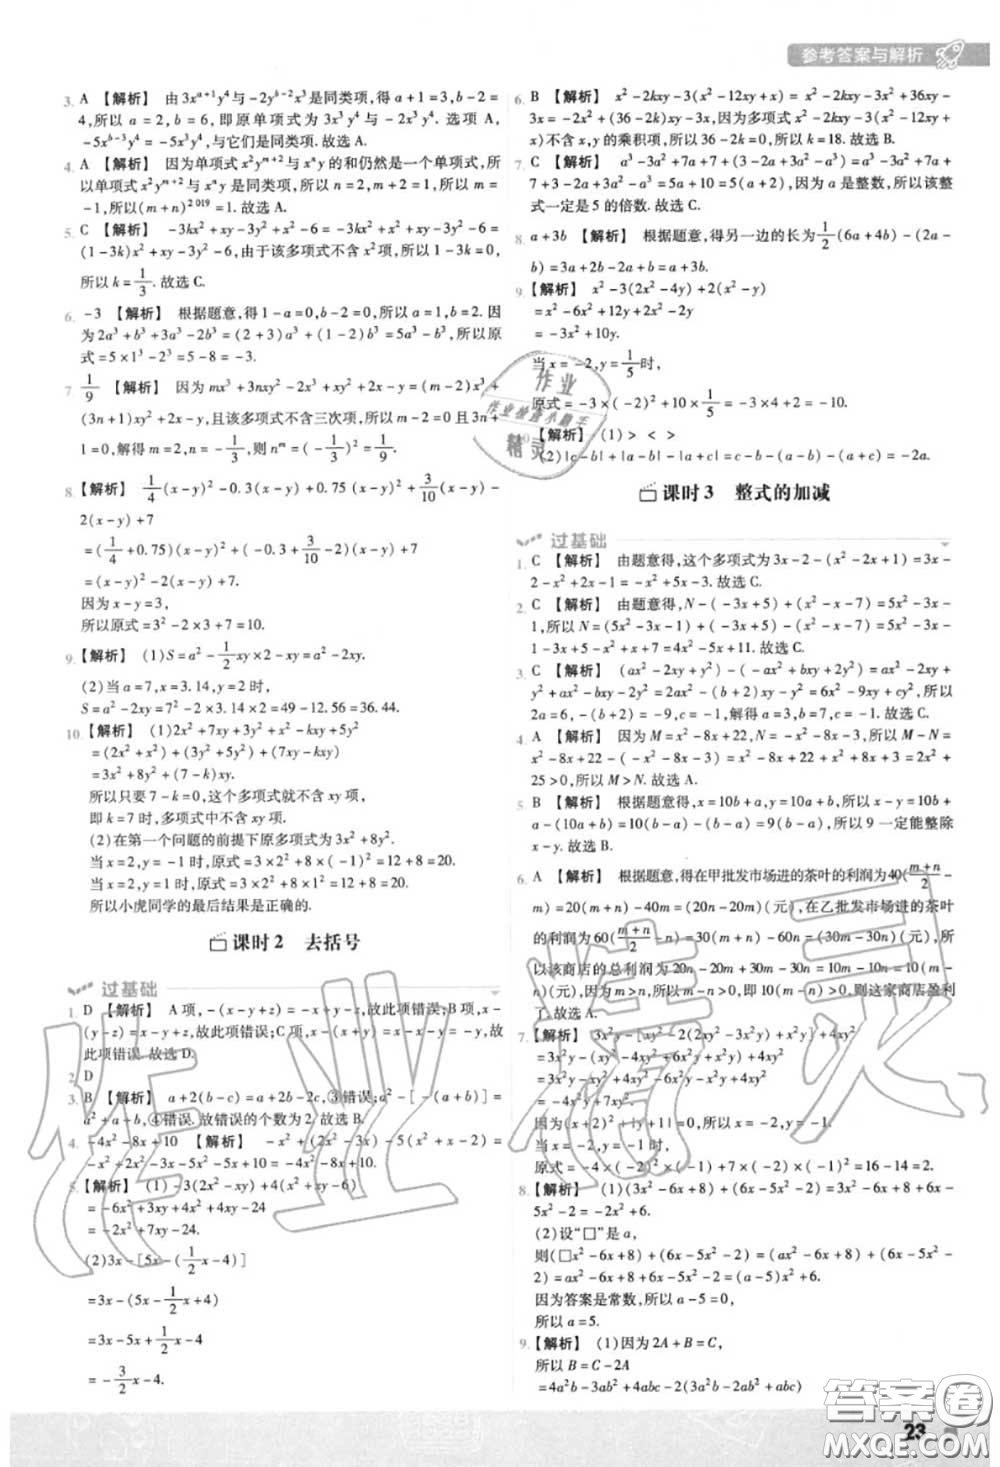 参考答案与解析
3. A 【解析】 由3xᵃ⁺¹y⁴与-2yᵇ⁻²x³是同类项,得a+1=3,b-2=
4,所以a=2,b=6,即原单项式为3x³y⁴与-2x³y⁴.选项A,
-5xᵇ⁻³y⁴=-5x³y⁴,与它们是同类项.故选A.
4. A 【解析】 因为单项式x²yᵐ⁺²与xⁿy的和仍然是一个单项式,所
以单项式x²yᵐ⁺²与xⁿy是同类项,所以n=2,m+2=1,所以m=
-1,所以(m+n)²⁰¹⁹=1.故选A.
5. C 【解析】 -3kx²+xy-3y²+x²-6=-3kx²+x²+xy-3y²-6=
(1-3k)x²+xy-3y²-6,由于该多项式不含x²项,故1-3k=0,
所以k=1/3.故选C.
6. -3 【解析】 根据题意,得1-a=0,b-2=0,所以a=1,b=2.因
为2a³+b³+3a³-2b³=(2+3)a³+(1-2)b³=5a³-b³,所以原
式=5×1³-2³=5-8=-3.
7 1/9 【解析】 因为mx³+3nxy²-2x³+xy²+2x-y=(m-2)x³+
(3n+1)xy²+2x-y,且该多项式不含三次项,所以m-2=0且3n+
1=0,解得m=2,n=-1/3,则nᵐ=(-1/3)²=1/9.
8. 【解析】 1/4(x-y)²-0.3(x-y)+0.75(x-y)²+3/10(x-y)-
2(x-y)+7
=(1/4+0.75)(x-y)²+(-0.3+3/10-2)(x-y)+7
=(x-y)²-2(x-y)+7.
因为x-y=3,
所以原式=3²-2×3+7=10.
9. 【解析】 (1)S=a²-1/2xy×2-xy=a²-2xy.
(2)当a=7,x=3.14,y=2时,
S=a²-2xy=7²-2×3.14×2=49-12.56=36.44.
10. 【解析】 (1)2x²+7xy+3y²+x²-kxy+5y²
=(2x²+x²)+(3y²+5y²)+(7xy-kxy)
=3x²+8y²+(7-k)xy.
所以只要7-k=0,这个多项式就不含xy项,
即k=7时,多项式中不含xy项.
(2)在第一个问题的前提下原多项式为3x²+8y².
当x=2,y=-1时,原式=3×2²+8×(-1)²=12+8=20.
当x=2,y=1时,原式=3×2²+8×1²=12+8=20.
所以小虎同学的最后结果是正确的.
课时2 去括号
过基础
1. D 【解析】 A项,-(-x+y+z)=-x+y-z,故此项错误;B项,x-
(-y+z)=x+y-z,故此项错误;C项,x-(x+y)=x-x-y=-y,故
此项错误.故选D.
2. D
3. B 【解析】 a+2(b-c)=a+2b-2c,③错误;a²-[-(-a+b)]=
a²+a+b,④错误.故错误的个数为2.故选B.
4. -4x²-8x+10 【解析】 -x²+(2x²-3x)-5(x²+x-2)=
-x²+2x²-3x-5x²-5x+10=-4x²-8x+10.
5. 【解析】 (1)-3(2x²-xy)+4(x²+xy-6)
=-6x²+3xy+4x²+4xy-24
=-2x²+7xy-24.
(2)3x-[5x-(1/2x-4)]
=3x-(5x-1/2x+4)
=3x-5x+1/2x-4
=-3/2x-4.
6. B 【解析】 x²-2kxy-3(x²-12xy+x)=x²-2kxy-3x²+36xy-
3x=-2x²+(36-2k)xy-3x,因为多项式x²-2kxy-3(x²-12xy+
x)不含x,y的乘积项,所以36-2k=0,所以k=18.故选B.
7. C 【解析】 a³-3a²+7a+7+(3-2a+3a²-a³)=a³-3a²+7a+
7+3-2a+3a²-a³=5a+10=5(a+2),因为a是整数,所以该整
式一定是5的倍数.故选C.
8. a+3b 【解析】 根据题意,得另一边的长为1/2(6a+4b)-(2a-
b)=3a+2b-2a+b=a+3b.
9. 【解析】 x²-3(2x²-4y)+2(x²-y)
=x²-6x²+12y+2x²-2y
=-3x²+10y.
当x=-2,y=1/5时,
原式=-3×(-2)²+10×1/5=-3×4+2=-10.
【解析】 (1)> < >
(2)|c-b|+|a-b|-|a+c|=c-b-(a-b)-(a+c)=-2a.
课时3 整式的加减
过基础
1. C 【解析】 由题意得,这个多项式为3x-2-(x²-2x+1)=3x-
2-x²+2x-1=-x²+5x-3.故选C.
2. C 【解析】 由题意得,N-(-3x+5)+(x²-x-7)=5x²-3x-
1,所以N=(5x²-3x-1)+(-3x+5)-(x²-x-7)=5x²-3x-
1-3x+5-x²+x+7=4x²-5x+11.故选C.
3. C 【解析】 (ax²-2xy+y²)-(-ax²+bxy+2y²)=ax²-2xy+
y²+ax²-bxy-2y²=2ax²-(2+b)xy-y²=6x²-9xy+cy²,所以
2a=6,-(b+2)=-9,c=-1,解得a=3,b=7,c=-1.故选C.
4. A 【解析】 因为M=x²-8x+22,N=-x²-8x-3,所以M-N=
x²-8x+22-(-x²-8x-3)=x²-8x+22+x²+8x+3=2x²+
25>0,所以M>N.故选A.
5. B 【解析】 根据题意得,x=10b+a,y=10a+b,所以x-y=10b+
a-(10a+b)=10(b-a)-(b-a)=9(b-a),所以9一定能整除
x-y.故选B.
6. A 【解析】 根据题意,得在甲批发市场进的茶叶的利润为40((m+n)/2-
m)=20(m+n)-40m=(20n-20m)(元),在乙批发市场进的茶叶
的利润为60((m+n)/2-n)=30(m+n)-60n=(30m-30n)(元),所
以该商店的总利润为20n-20m+30m-30n=10m-10n=10(m-
n)(元),因为m>n,所以m-n>0,即10(m-n)>0,则这家商店盈利
了.故选A.
7. 【解析】 3x²y-[xy²-2(2xy²-3x²y)+x²y]+4xy²
=3x²y-xy²+4xy²-6x²y-x²y+4xy²
=-4x²y+7xy².
因为(x+2)²+|y+1|=0,所以x=-2,y=-1.
当x=-2,y=-1时,
原式=-4×(-2)²×(-1)+7×(-2)×(-1)²=16-14=2.
8. 【解析】 (1)(3x²-6x+8)+(6x-5x²-2)=3x²-6x+8+6x-
5x²-2=-2x²+6.
(2)设“□”是a,
则(□x²-6x+8)+(6x-5x²-2)=(ax²-6x+8)+(6x-5x²-
2)=ax²-6x+8+6x-5x²-2=(a-5)x²+6.
因为答案是常数,所以a-5=0,
所以a=5.
9. 【解析】 (1)因为2A+B=C,
所以B=C-2A
=4a²b-3ab²+4abc-2(3a²b-2ab²+abc)
23
作业精灵
作业
作业检查小助手
精灵
答案圈
MXQE.COM